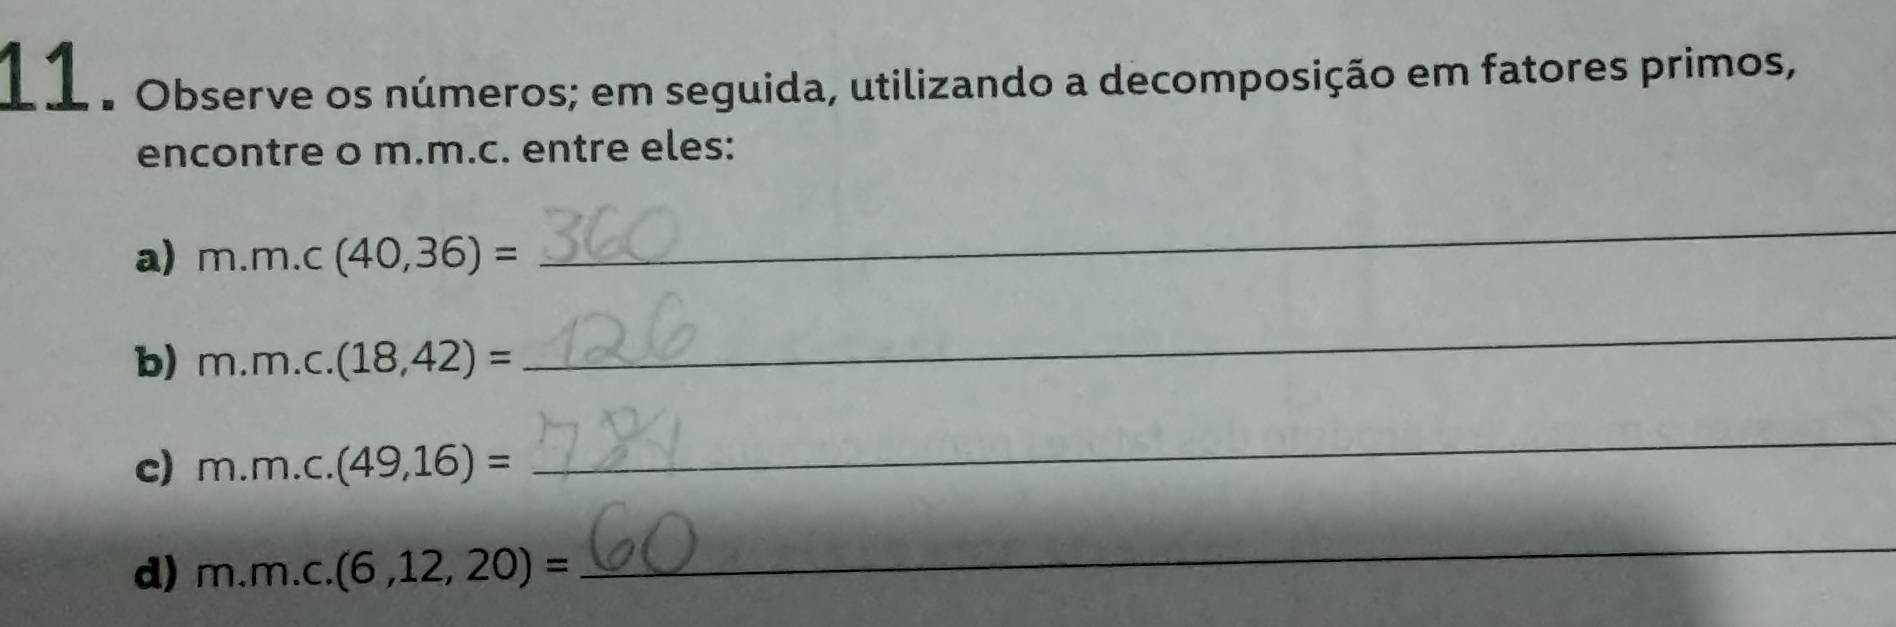 11. Observe os números; em seguida, utilizando a decomposição em fatores primos,
encontre o m.m.c. entre eles:
a) m.m.c (40,36) = 360
b) m.m.c.(18,42) = 126
c) m.m.c.(49,16) = 784
d) m.m.c.(6 ,12, 20) = 60